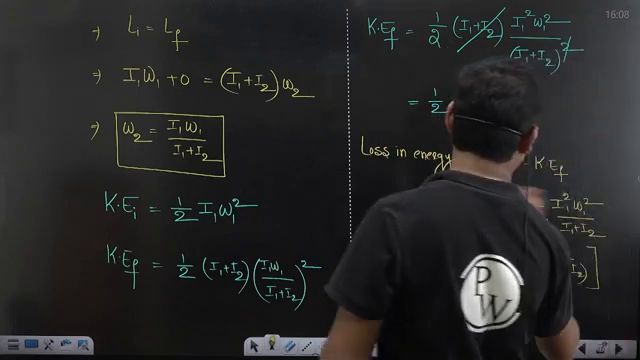 ⇒ Li = Lf
⇒ I₁W₁ + 0 = (I₁+I₂)ω₂
⇒ ω₂ = I₁W₁ / (I₁+I₂)
K·Ei = 1/2 I₁ω₁²
K·Ef = 1/2 (I₁+I₂) (I₁W₁ / (I₁+I₂))²
K·Ef = 1/2 (I₁+I₂) I₁²ω₁² / (I₁+I₂)²
= 1/2
Loss in energy
KEf
I₁²ω₁² / (I₁+I₂)
PW
16:08